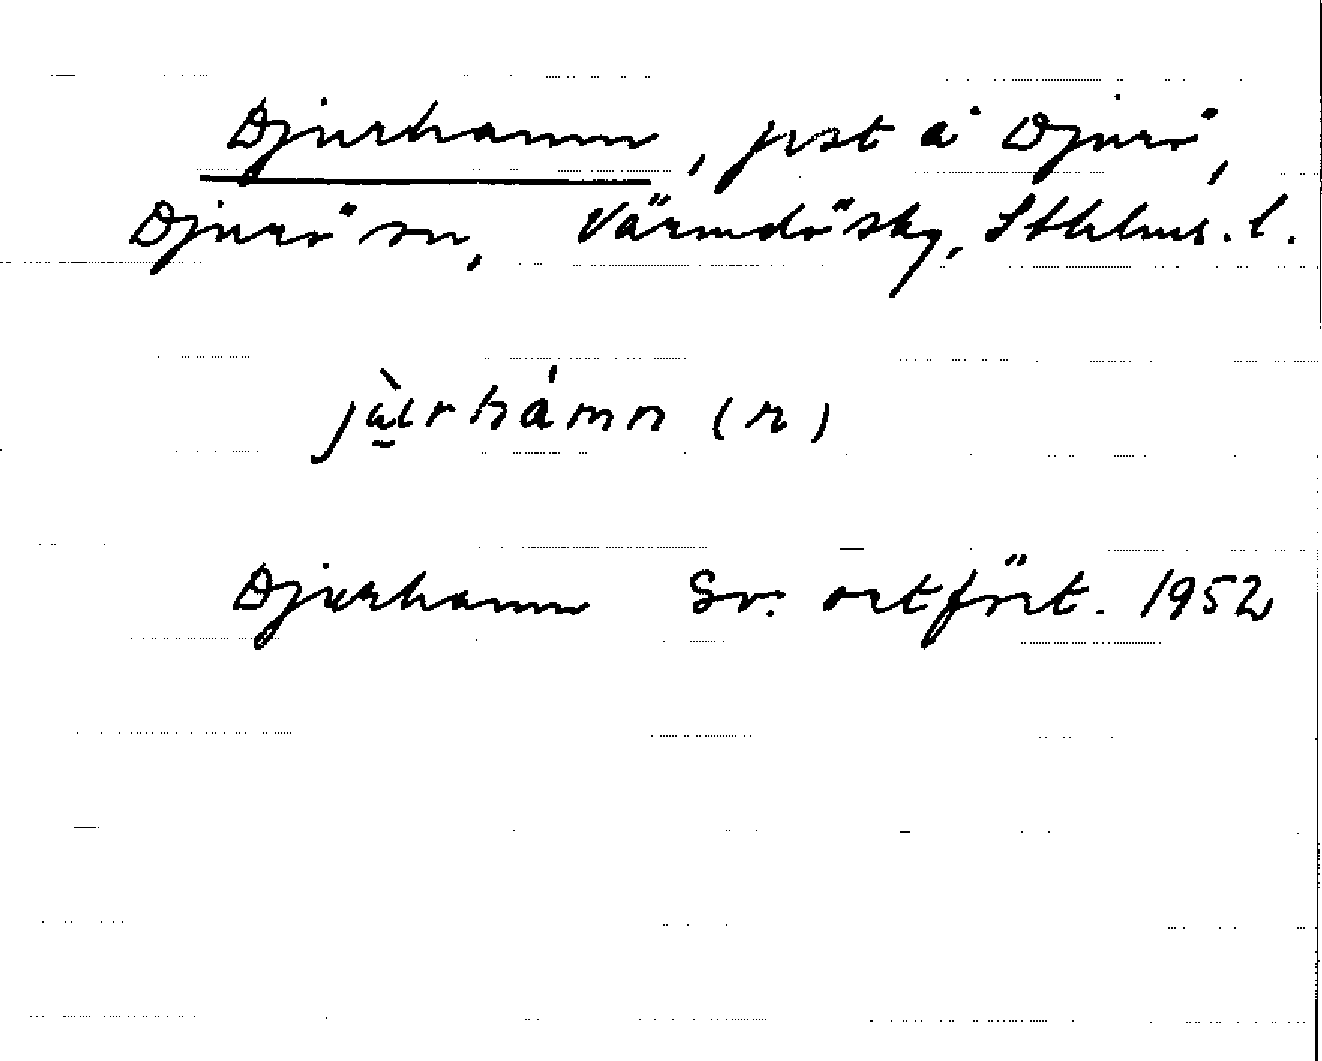 Djurhamn, pst å Djurö,
Djurö sn, Värmdö skg, Sthlms. l.
hámn (n)
Djurhamn Sv. ortfört. 1952